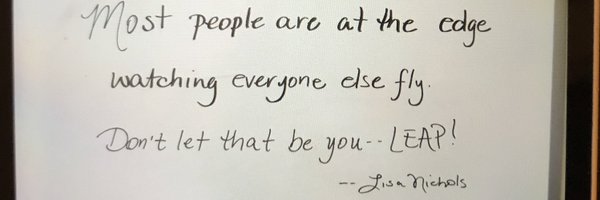 Most people are at the edge
watching everyone else fly.
Don't let that be you-- LEAP!
-- Lisa Nichols